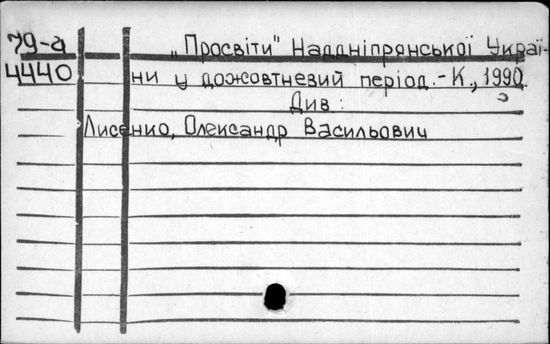 79-а „Просвіти" Наддніпрянської Украї-
4440 ни у дожовтневий період.-К., 1990.
Див:
Лисенко, Олександр Васильович